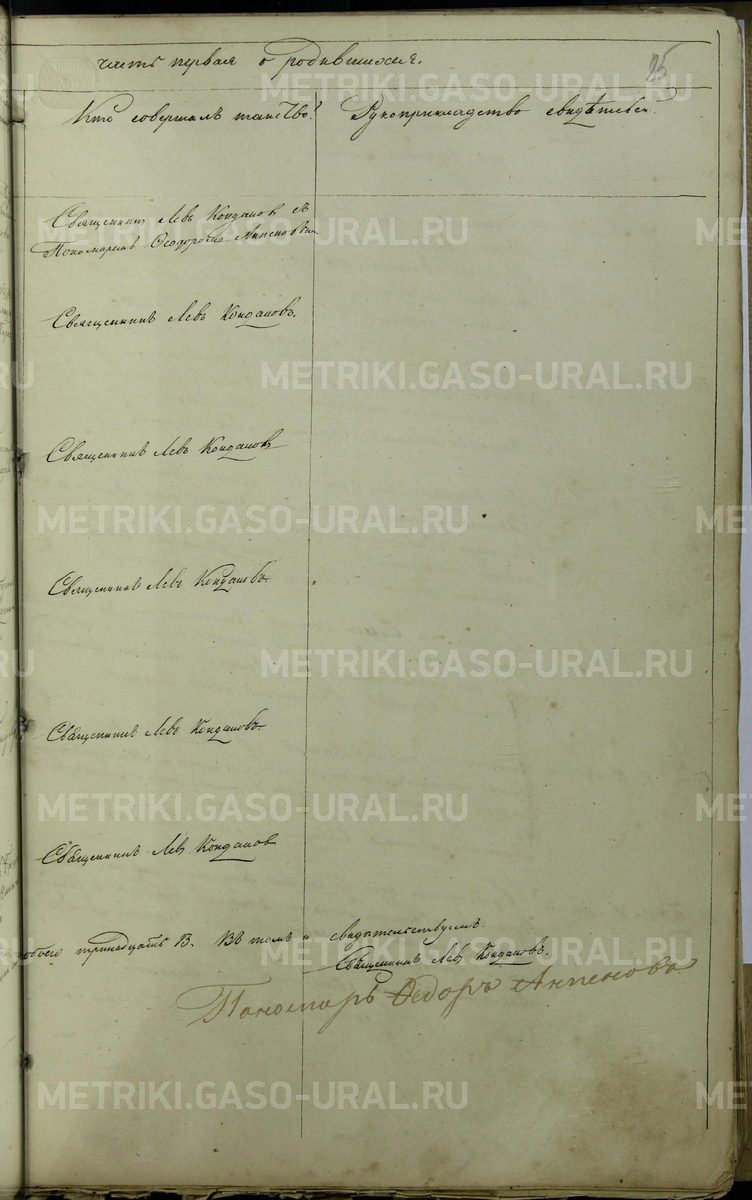 часть первая о родившихся.
85
Кто совершалъ таинство?
Рукоприкладство свидѣтелей
Священникъ Левъ Кондаковъ съ
Пономаремъ Ѳеодоромъ
Священникъ Левъ Кондаковъ.
Священникъ Левъ Кондаковъ
Священникъ Левъ Кондаковъ.
Священникъ Левъ Кондаковъ.
Священникъ Левъ Кондаковъ
обоего тринадцать 13. Въ томъ и свидѣтельствуемъ:
Священникъ Левъ Кондаковъ.
Пономарь Ѳедоръ
METRIKI.GASO-URAL.RU
METRIKI.GASO-URAL.RU
METRIKI.GASO-URAL.RU
METRIKI.GASO-URAL.RU
METRIKI.GASO-URAL.RU
METRIKI.GASO-URAL.RU
METRIKI.GASO-URAL.RU
METRIKI.GASO-URAL.RU